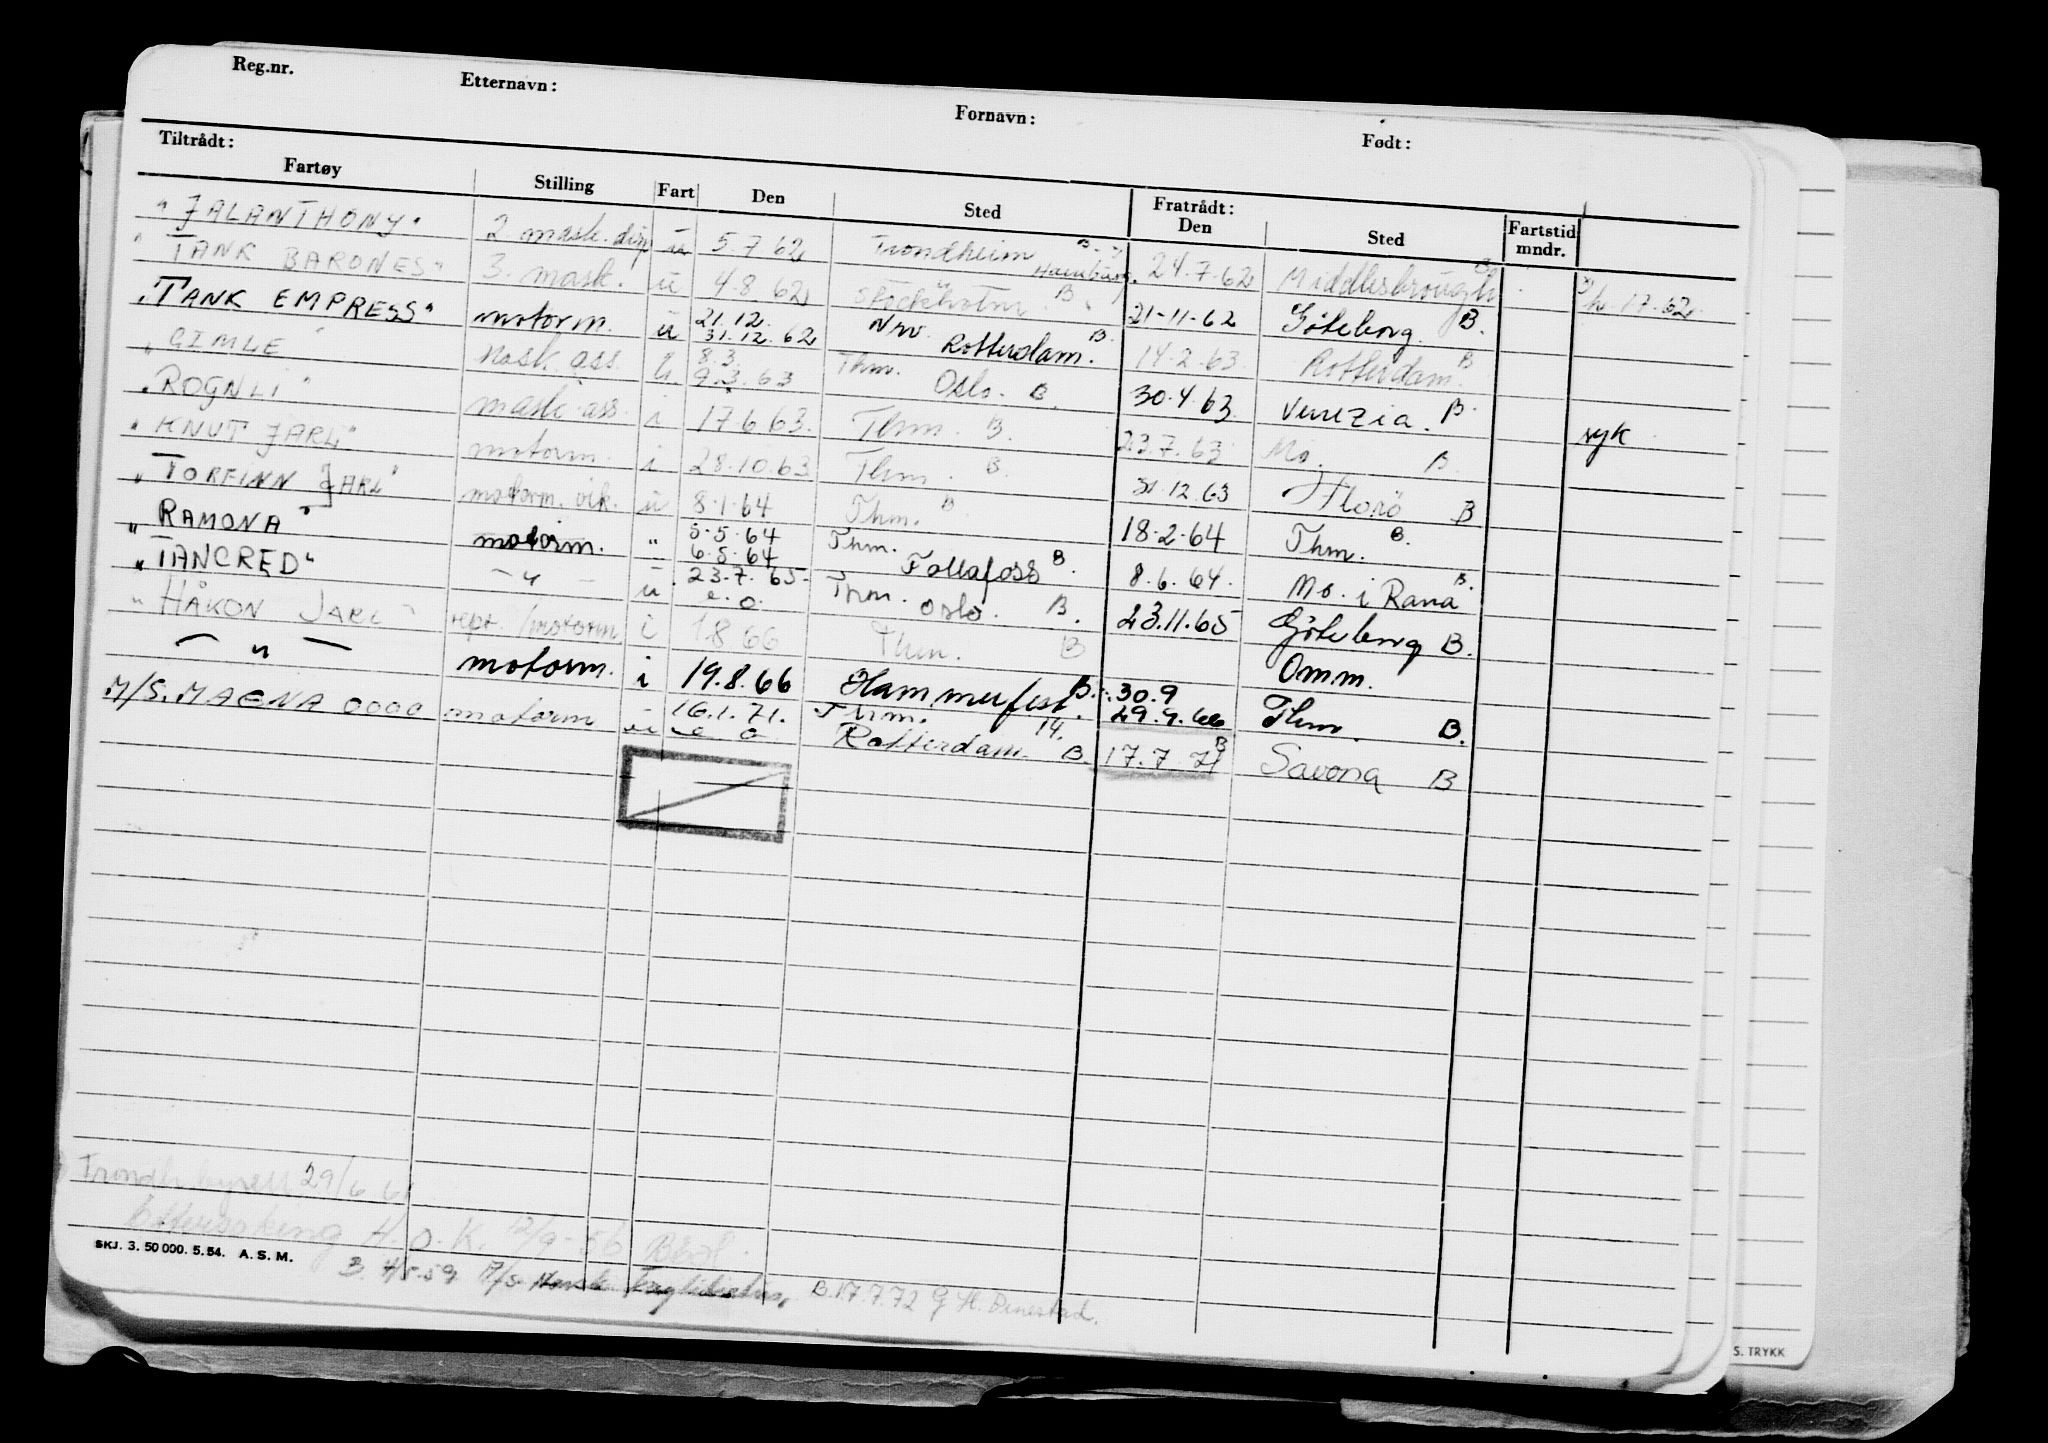 Reg.nr. Etternavn: Fornavn: Født:
Tiltrådt: Fratrådt:
Fartøy Stilling Fart Den Sted Den Sted Fartstid mndr.
"JALANTHONY" 2 mask. disp u 5.7.62 Trondheim B Hamburg. 24.7.62 Middlesbrough B
"TANK BARONESS" 3. mask. u 4.8.62 Stockholm B 21-11-62 Göteborg B.
"TANK EMPRESS" motorm. u 21.12. 31.12.62 Nrv. Rotterdam. B. 14.2.63. Rotterdam. B
"GIMLE" Mask. ass. u. 8.3 9.3.63 Thm. Oslo. B. 30.4.63. Venezia. B.
"ROGNLI" mask. ass. i 17.6.63. Thm. B. 23.7.63 Mo. B. syk
"KNUT JARL" motorm. i 28.10.63 Thm. B. 31.12.63 Florö B
"TORFINN JARL" motorm. vik. u 8.1.64 Thm. B. 18.2.64 Thm. B.
"RAMONA" motorm. " 5.5.64 6.5.64 Thm. Follafoss B. 8.6.64. Mo. i Rana B.
"TANCRED" - " - u 23.7.65. a. o. Thm. Oslo. B. 23.11.65 Göteborg B.
"HÅKON JARL" repr./motorm i 1.8.66 Thm. B Omm.
- " - motorm. i 19.8.66 Hammerfest. B. 30.9 29.9.66 Thm. B.
M/S. MAGNA motorm u 16.1.71. a o Thm. Rotterdam. 14. B. 17.7.71 B Savona B
29/6 61
H.O.K. 12/9-56
SKJ. 3. 50 000. 5. 54. A. S. M.
B. 4/5.59 M/S B. 17.7.72
S. TRYKK